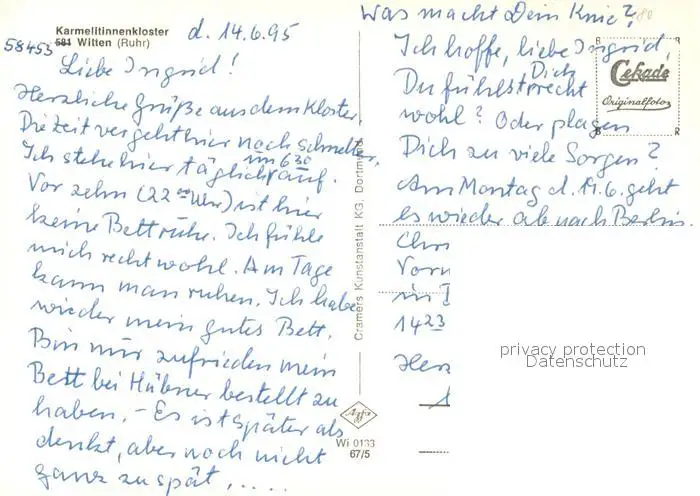 Karmelitinnenkloster
58453 581 Witten (Ruhr)
d. 14.6.95
Liebe Ingrid!
Herzliche Grüße aus dem Kloster.
Die Zeit vergeht hier noch schneller,
Ich stehe hier täglich um 6 30 auf.
Vor zehn (22 00 Uhr) ist hier
keine Bettruhe. Ich fühle
mich recht wohl. Am Tage
kann man ruhen. Ich habe
wieder mein gutes Bett.
Bin nur zufrieden mein
Bett bei Hübner bestellt zu
haben. – Es ist später als
denkt, aber noch nicht
ganz zu spät, .....
Was macht Dein Knie?
Ich hoffe, liebe Ingrid,
Du fühlst Dich recht
wohl? Oder plagen
Dich zu viele Sorgen?
Am Montag d. 19.6. geht
es wieder ab nach Berlin.
Vorn
in
14 23
Herz
Cekade
Originalfotos
Cramers Kunstanstalt KG. Dortmund
Agfa
Wi 0133
67/5
privacy protection
Datenschutz